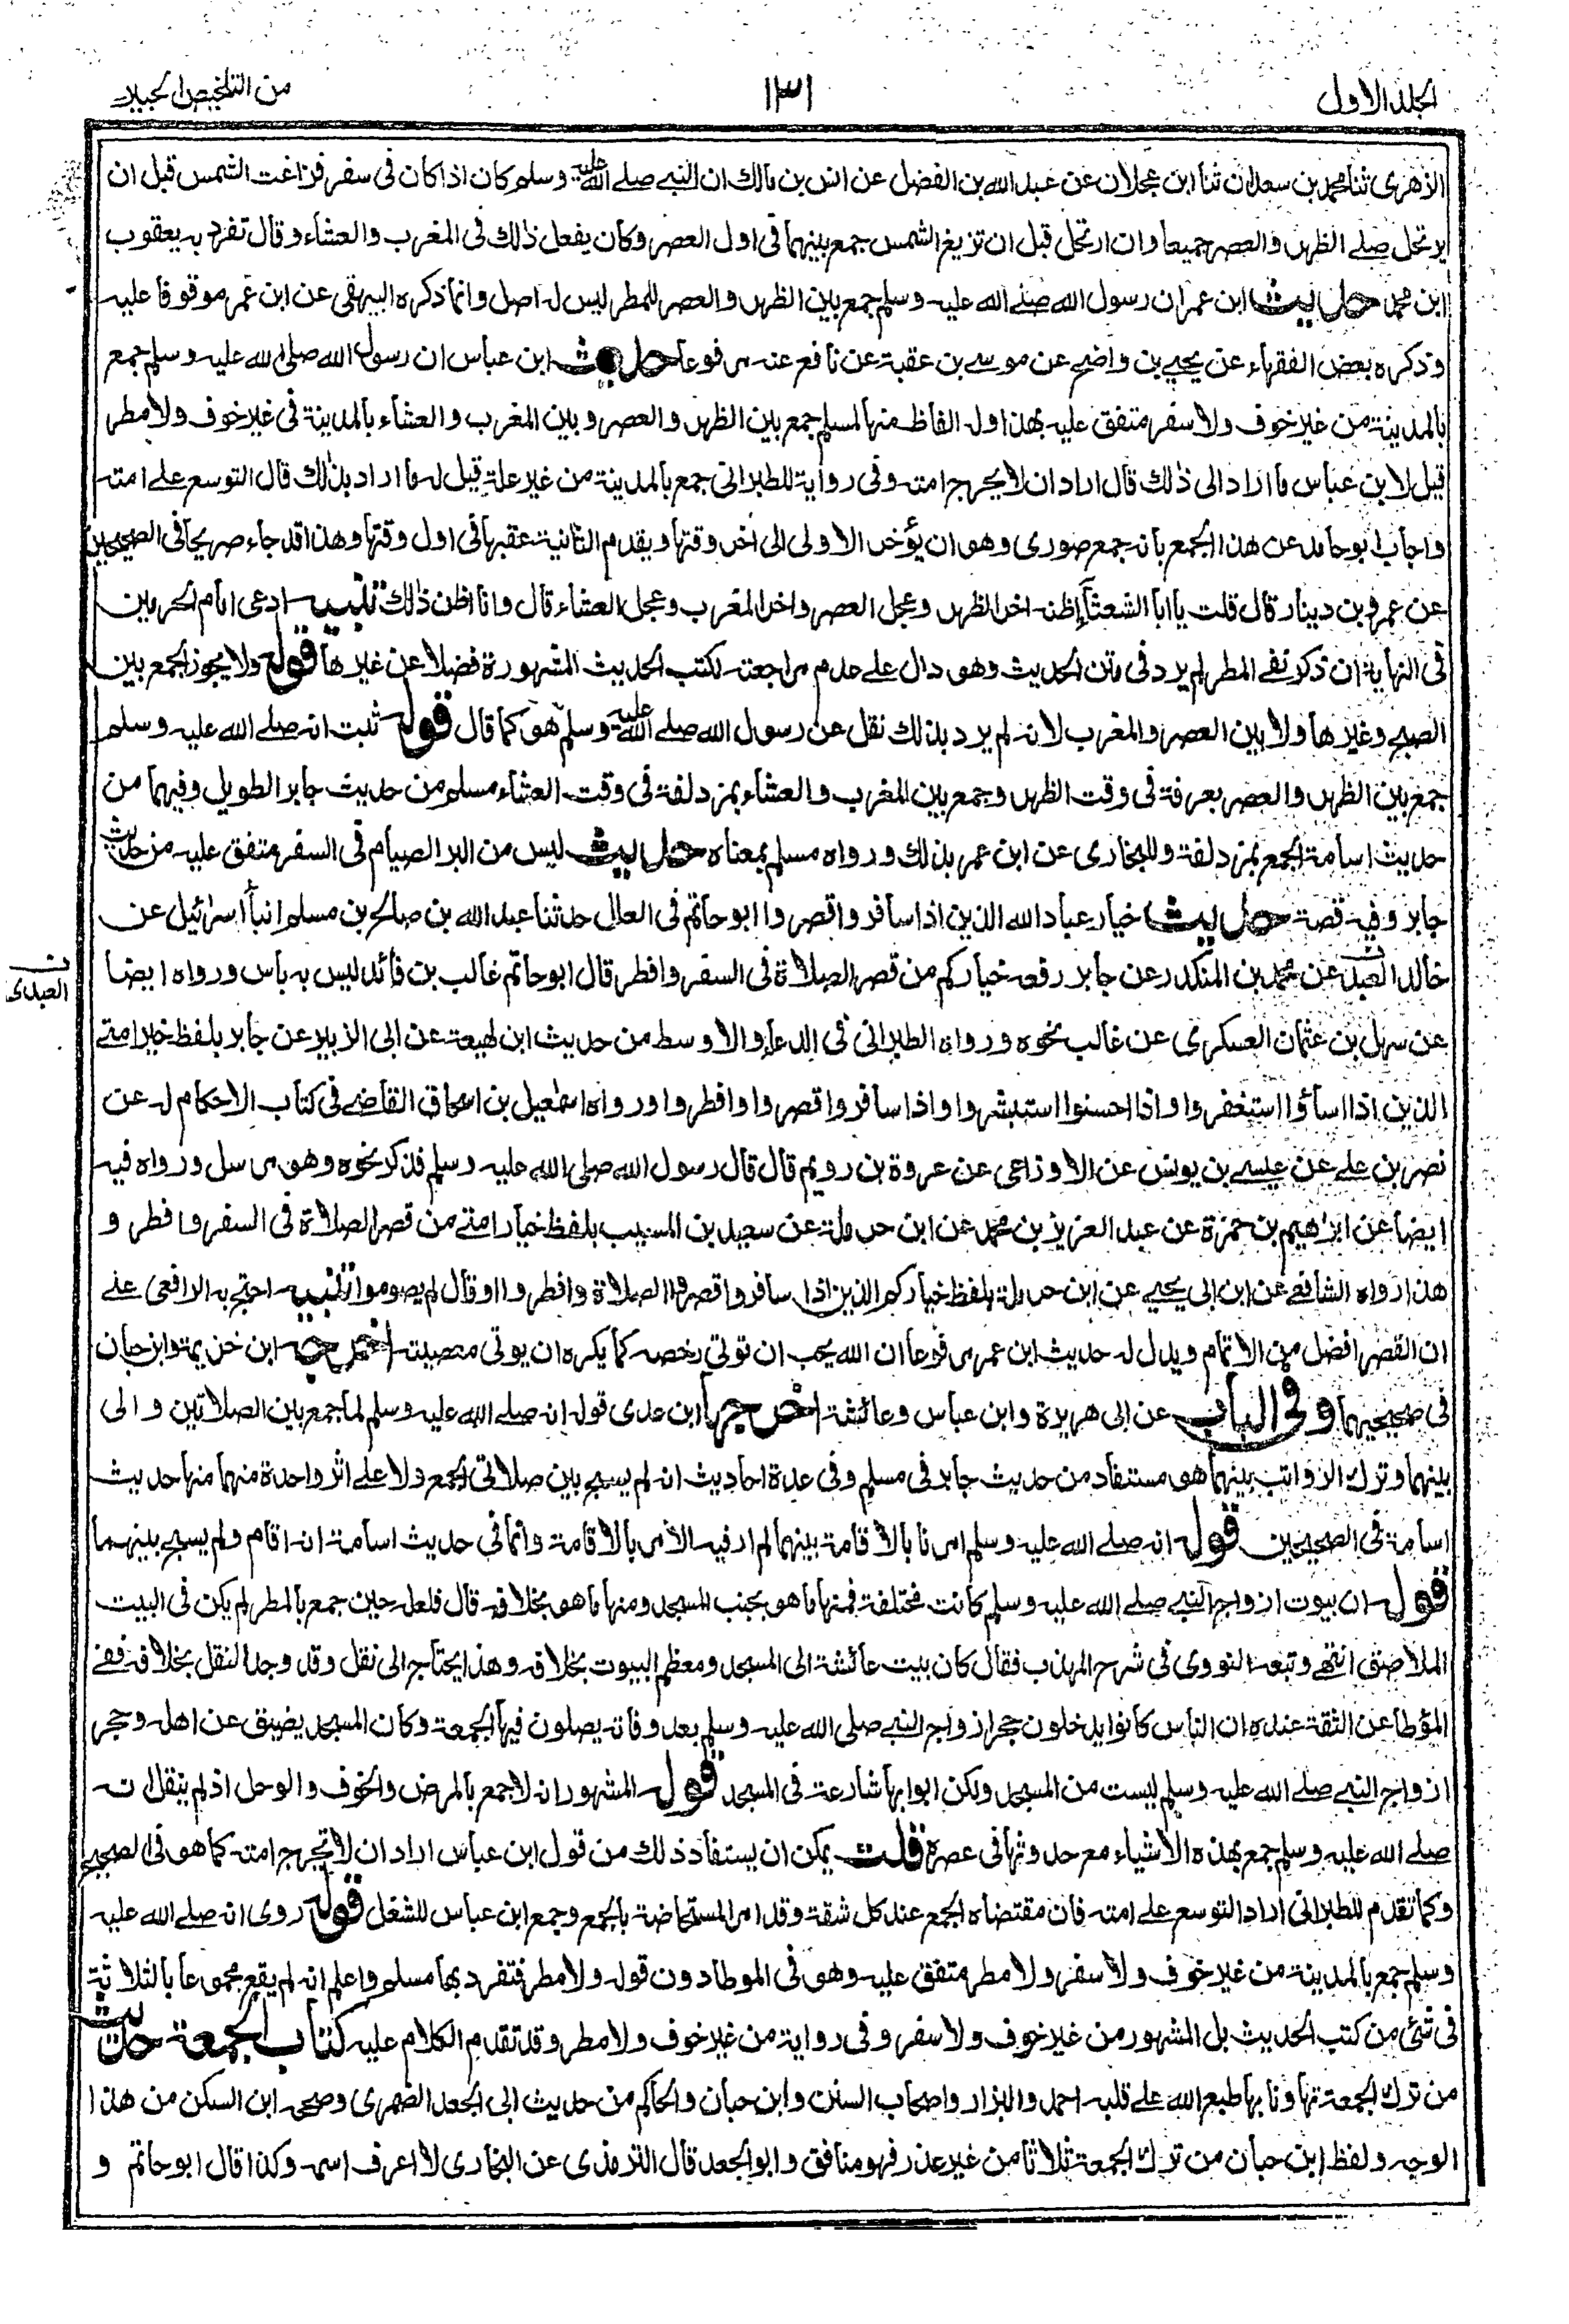 الجلد الاول
١٣١
من التلخيص الحبير
الازهرى ثنا محمد بن سعدان ثنا ابن عجلان عن عبد الله بن الفضل عن انس بن مالك ان النبي صلے الله عليه وسلم كان اذا كان فى سفر فزاغت الشمس قبل ان
يرتحل صلے الظهر والعصر جميعا وان ارتحل قبل ان تزيغ الشمس جمع بينهما فى اول العصر وكان يفعل ذلك فى المغرب والعشاء وقال تفرد به يعقوب
ابن محمد حديث ابن عمر ان رسول الله صلے الله عليه وسلم جمع بين الظهر والعصر للمطر ليس له اصل وانما ذكره البيهقى عن ابن عمر موقوفا عليه
وذكره بعض الفقهاء عن يحيے بن واضح عن موسے بن عقبة عن نافع عنه مرفوعا حديث ابن عباس ان رسول الله صلى الله عليه وسلم جمع
بالمدينة من غير خوف ولا سفر متفق عليه بهذا وله الفاظ منها لمسلم جمع بين الظهر والعصر وبين المغرب والعشاء بالمدينة فى غير خوف ولا مطر
قيل لابن عباس ما اراد الى ذلك قال اراد ان لا يحرج امته وفى رواية للطبرانى جمع بالمدينة من غير علة قيل له ما اراد بذلك قال التوسع علے امته
واجاب ابو حامد عن هذا الجمع بانه جمع صورى وهو ان يؤخر الاولى الى اخر وقتها ويقدم الثانية عقبها فى اول وقتها وهذا قد جاء صريحا فى الصحيحين
عن عمرو بن دينار قال قلت يا ابا الشعثاء اظنه اخر الظهر وعجل العصر واخر المغرب وعجل العشاء قال وانا اظن ذلك تنبيه ادعى امام الحرمين
فى النهاية ان ذكر نفے المطر لم يرد فى متن الحديث وهو دال علے عدم مراجعته لكتب الحديث المشهورة فضلا عن غيرها قوله ولا يجوز الجمع بين
الصبح وغيرها ولا بين العصر والمغرب لانه لم يرد بذلك نقل عن رسول الله صلے الله عليه وسلم هو كما قال قوله ثبت انه صلے الله عليه وسلم
جمع بين الظهر والعصر بعرفة فى وقت الظهر وجمع بين المغرب والعشاء بمزدلفة فى وقت العشاء مسلم من حديث جابر الطويل وفيهما من
حديث اسامة الجمع بمزدلفة وللبخارى عن ابن عمر بذلك ورواه مسلم بمعناه حديث ليس من البر الصيام فى السفر متفق عليه من حديث
جابر وفيه قصة حديث خيار عباد الله الذين اذا سافروا قصروا ابو حاتم فى العلل حدثنا عبد الله بن صالح بن مسلم انبأ اسرائيل عن
خالد العبد عن محمد بن المنكدر عن جابر رفعه خياركم من قصر الصلاة فى السفر وافطر قال ابو حاتم غالب بن فائد ليس به باس ورواه ايضا
ن
العبدى
عن سهل بن عثمان العسكرى عن غالب نحوه ورواه الطبرانى فى الدعاء والاوسط من حديث ابن لهيعة عن ابى الزبير عن جابر بلفظ خير امتے
الذين اذا اساؤا استغفروا واذا احسنوا استبشروا واذا سافروا قصروا وافطروا ورواه اسمعيل بن اسحاق القاضے فى كتاب الاحكام له عن
نصر بن علے عن عيسے بن يونس عن الاوزاعى عن عروة بن رويم قال قال رسول الله صلى الله عليه وسلم فذكر نحوه وهو مرسل ورواه فيه
ايضا عن ابراهيم بن حمزة عن عبد العزيز بن محمد عن ابن حرملة عن سعيد بن المسيب بلفظ خيار امتے من قصر الصلاة فى السفر وافطر و
هذا رواه الشافعے عن ابن ابى يحيے عن ابن حرملة بلفظ خياركم الذين اذا سافروا قصروا الصلاة وافطروا او قال لم يصوموا تنبيه احتج به الرافعى علے
ان القصر افضل من الاتمام ويدل له حديث ابن عمر مرفوعا ان الله يحب ان توتى رخصه كما يكره ان يوتى معصيته اخرجه ابن خزيمة وابن حبان
فى صحيحيهما وفى الباب عن ابى هريرة وابن عباس وعائشة اخرجها ابن عدى قوله انه صلے الله عليه وسلم لما جمع بين الصلاتين والى
بينهما وترك الرواتب بينهما هو مستفاد من حديث جابر فى مسلم وفى عدة احاديث انه لم يسبح بين صلاتى الجمع ولا علے اثر واحدة منهما منها حديث
اسامة فى الصحيحين قوله انه صلے الله عليه وسلم امرنا بالاقامة بينهما لم ار فيه الامر بالاقامة وانما فى حديث اسامة انه اقام ولم يسبح بينهما
قوله ان بيوت ازواج النبے صلے الله عليه وسلم كانت مختلفة فمنها ما هو بجنب المسجد ومنها ما هو بخلافه قال فلعله حين جمع بالمطر لم يكن فى البيت
الملاصق انتهے وتبعه النووى فى شرح المهذب فقال كان بيت عائشة الى المسجد ومعظم البيوت بخلافه وهذا يحتاج الى نقل وقد وجد النقل بخلافه ففے
المؤطا عن الثقة عنده ان الناس كانوا يدخلون حجر ازواج النبے صلى الله عليه وسلم بعد وفاته يصلون فيها الجمعة وكان المسجد يضيق عن اهله وحجر
ازواج النبے صلے الله عليه وسلم ليست من المسجد ولكن ابوابها شارعة فى المسجد قوله المشهور انه لا جمع بالمرض والخوف والوحل اذ لم ينقل انه
صلے الله عليه وسلم جمع بهذه الاشياء مع حدوثها فى عصره قلت يمكن ان يستفاد ذلك من قول ابن عباس اراد ان لا تحرج امته كما هو فى الصحيح
وكما تقدم للطبرانى اراد التوسع علے امته فان مقتضاه الجمع عند كل شقة وقد امر المستحاضة بالجمع وجمع ابن عباس للشغل قوله روى انه صلے الله عليه
وسلم جمع بالمدينة من غير خوف ولا سفر ولا مطر متفق عليه وهو فى الموطا دون قوله ولا مطر فتفرد بها مسلم واعلم انه لم يقع مجموعا بالثلاثة
فى شئ من كتب الحديث بل المشهور من غير خوف ولا سفر وفى رواية من غير خوف ولا مطر وقد تقدم الكلام عليه كتاب الجمعة حديث
من ترك الجمعة تهاونا بها طبع الله علے قلبه احمد والبزار واصحاب السنن وابن حبان والحاكم من حديث ابى الجعد الضمرى وصححه ابن السكن من هذا
الوجه ولفظ ابن حبان من ترك الجمعة ثلاثا من غير عذر فهو منافق وابو الجعد قال الترمذى عن البخارى لا اعرف اسمه وكذا قال ابو حاتم و